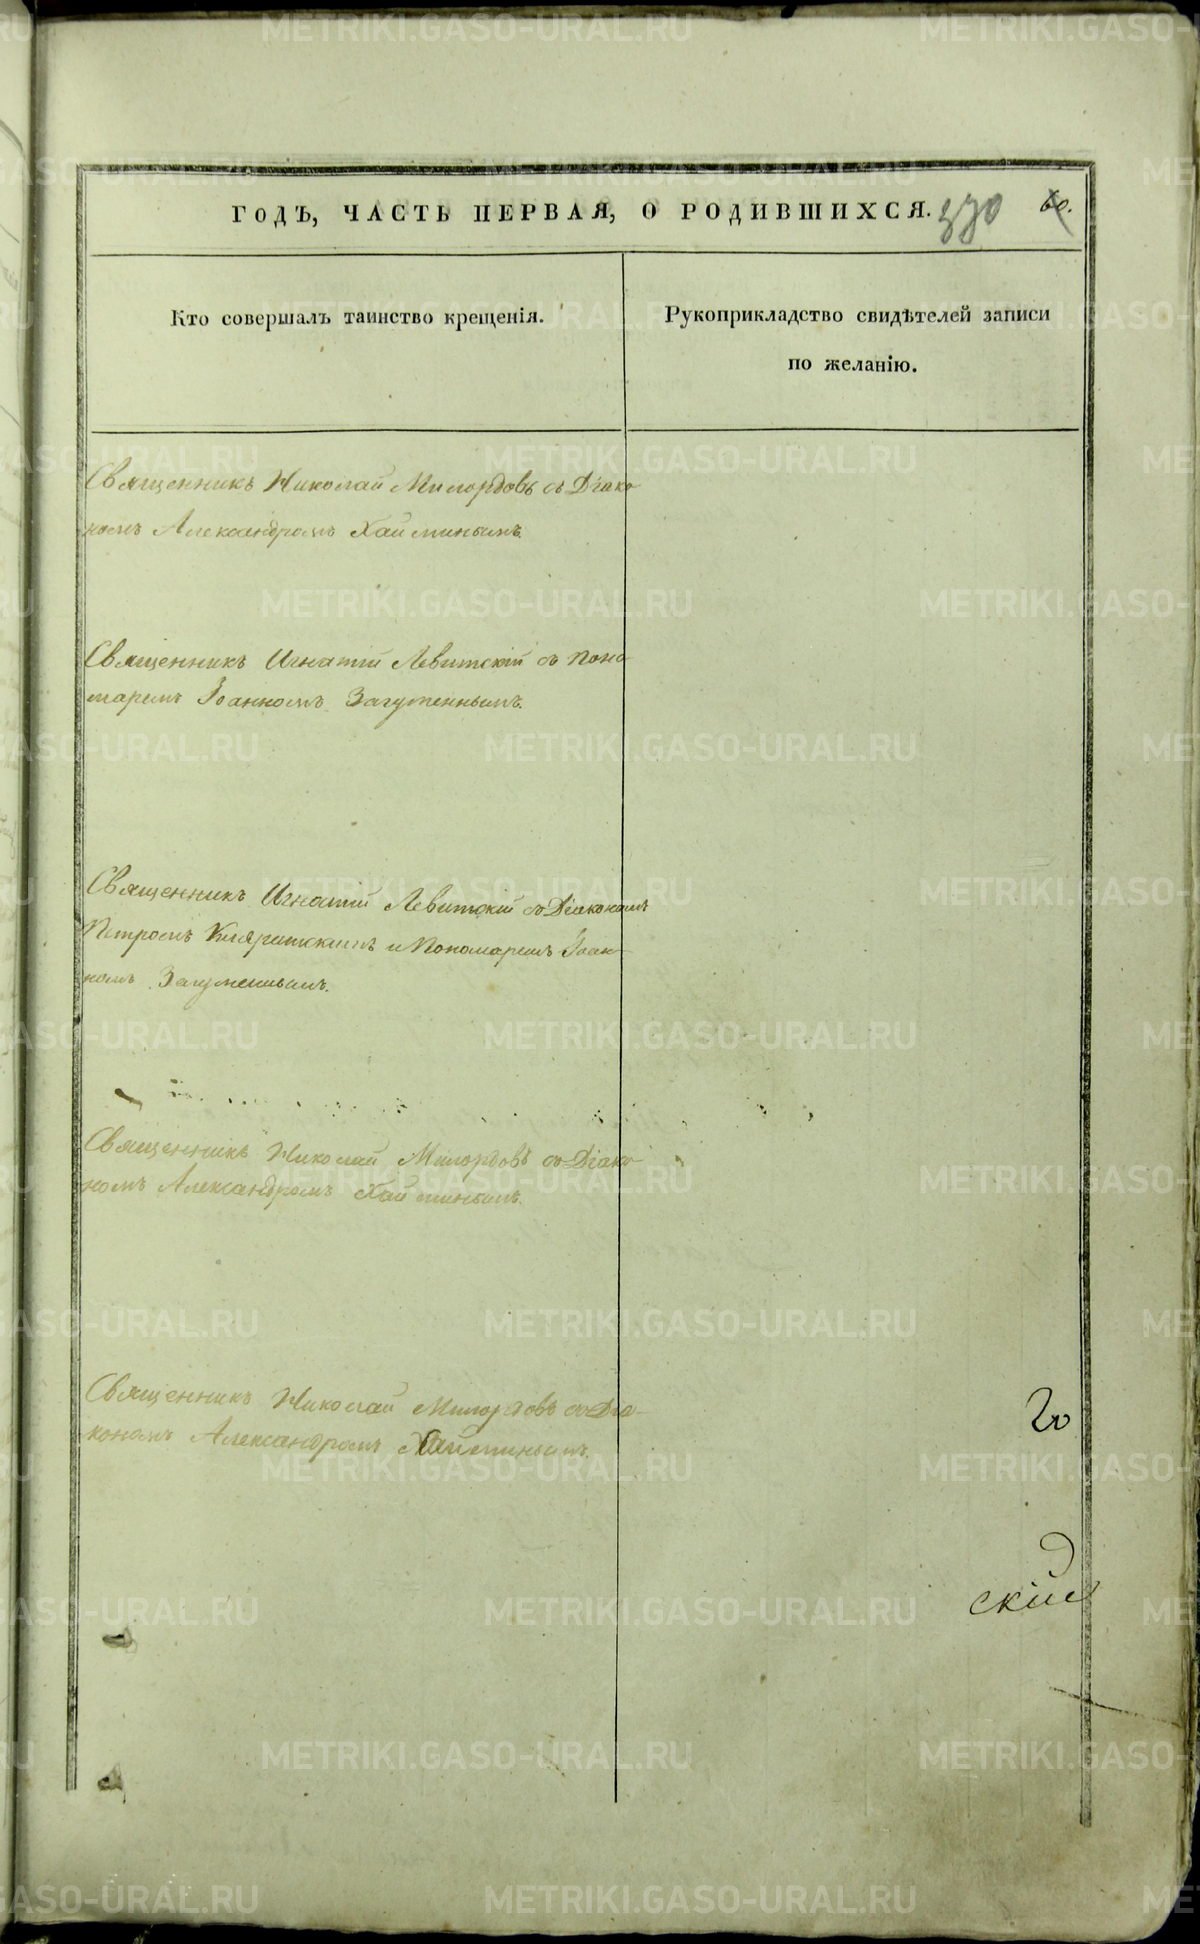 ГОДЪ, ЧАСТЬ ПЕРВАЯ, О РОДИВШИХСЯ. 330 60.
Кто совершалъ таинство крещенія.
Рукоприкладство свидѣтелей записи
по желанію.
Священникъ Николай Милордовъ съ Діако
номъ Александромъ Хайминымъ.
Священникъ Игнатій Левитскій съ Поно
маремъ Іоанномъ Загуменнымъ.
Священникъ Игнатій Левитскій съ Діакономъ
Петромъ и Пономаремъ Іоан
номъ Загуменнымъ.
Священникъ Николай Милордовъ съ Діако
номъ Александромъ Хайминымъ.
Священникъ Николай Милордовъ съ Діа
кономъ Александромъ Хайминымъ.
скій
METRIKI.GASO-URAL.RU